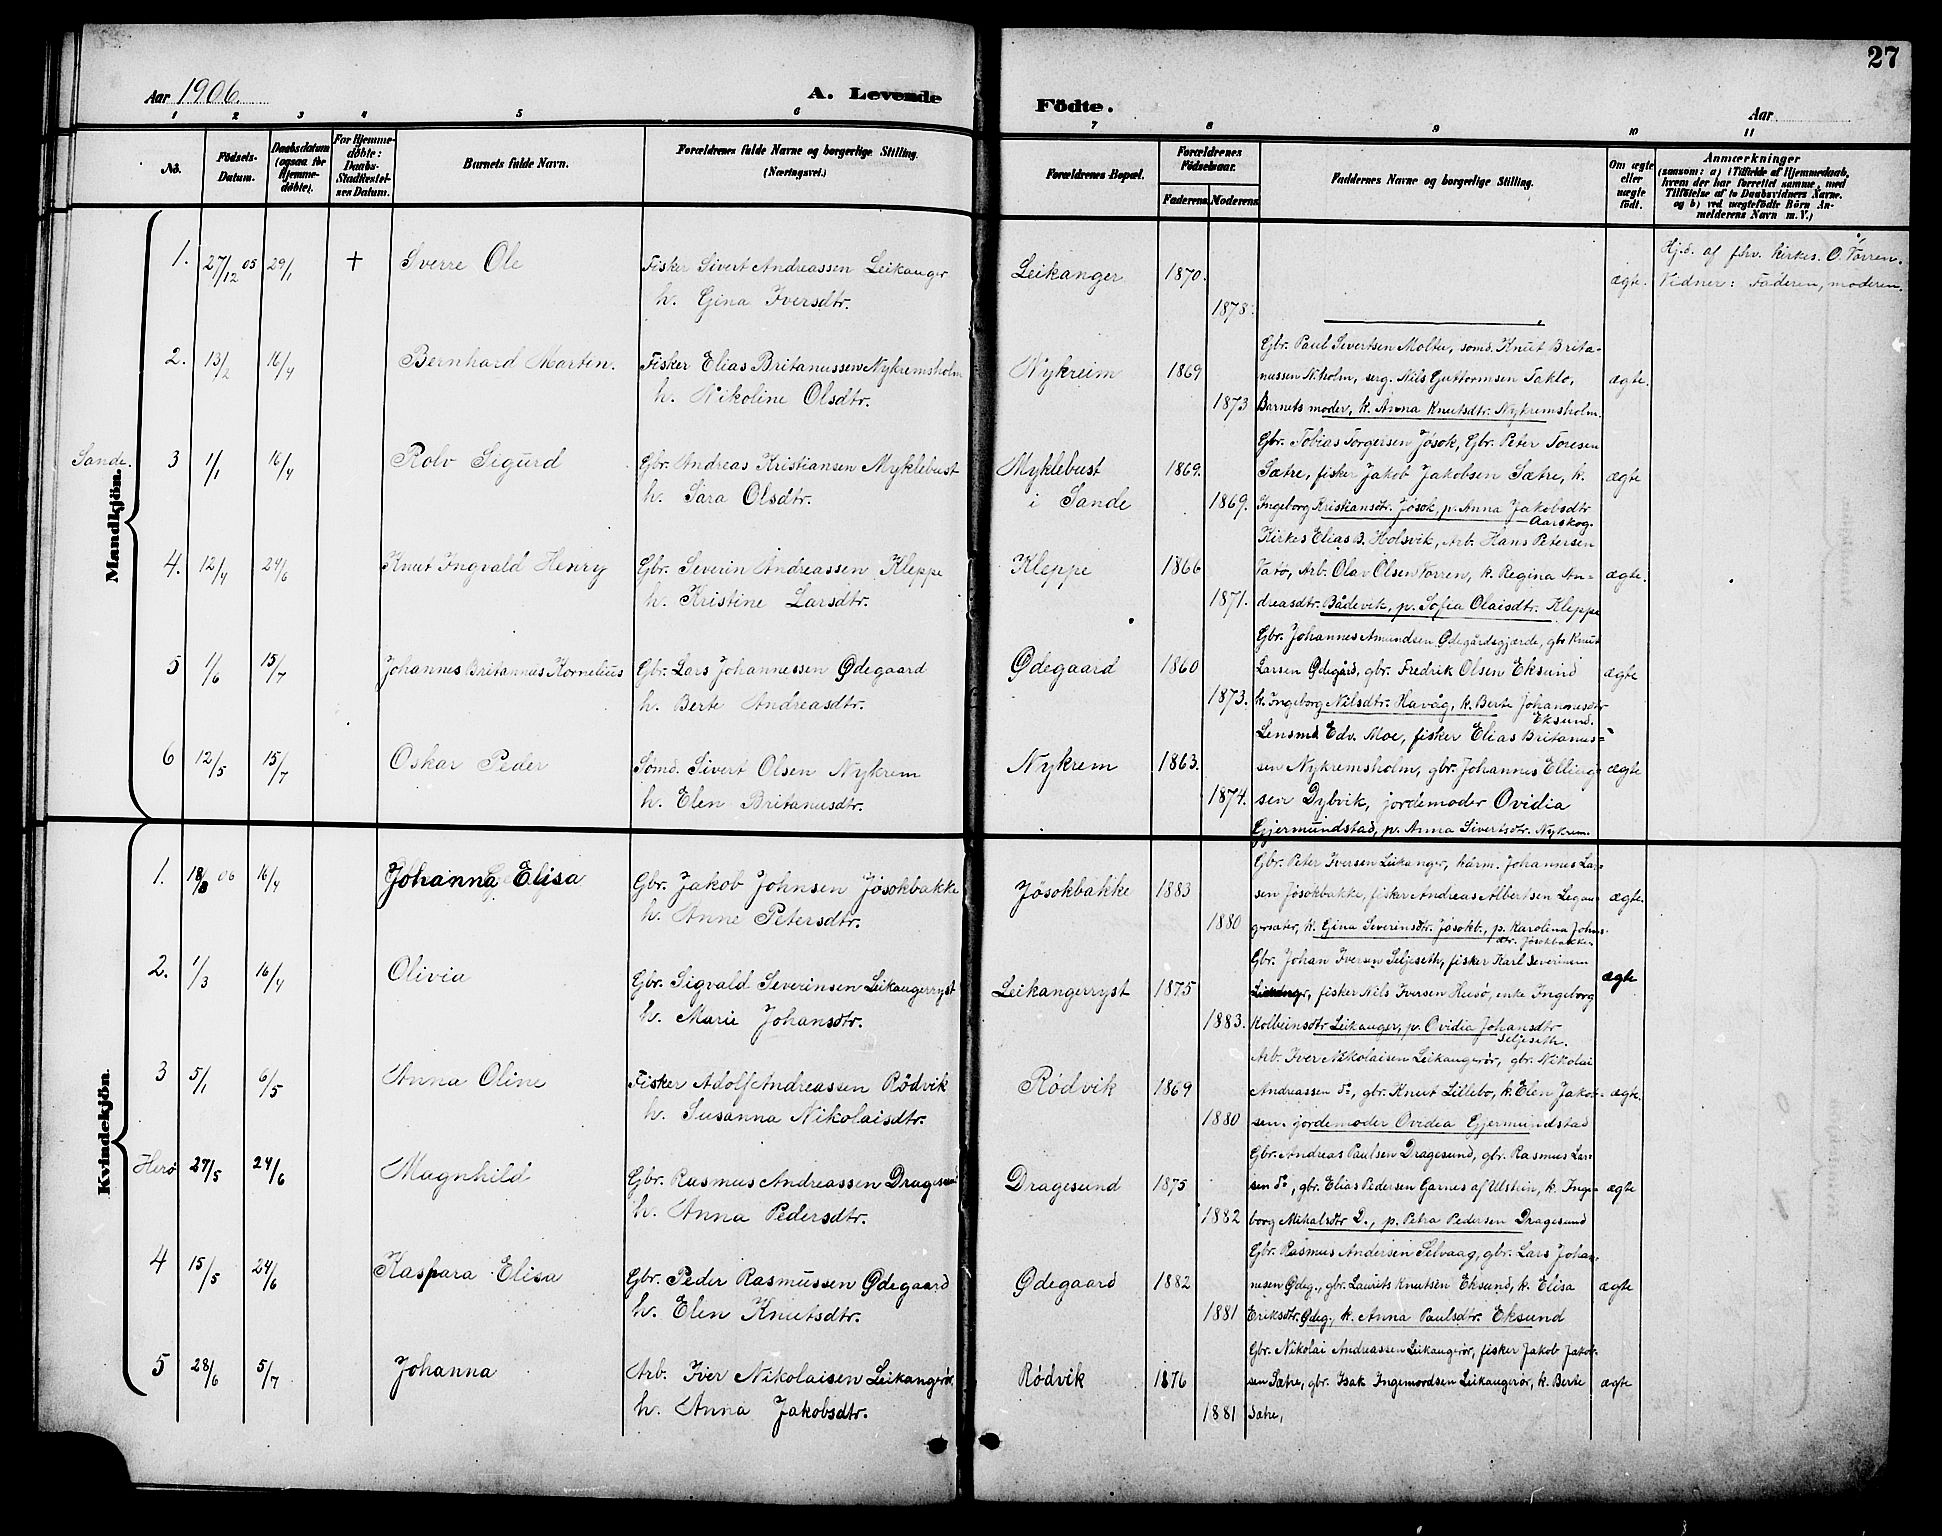 27
Aar 1906.
A. Levende
Födte.
Aar
1 2 3 4 5 6 7 8 9 10 11
No.
Födsels-Datum.
Daabsdatum (ogsaa for Hjemme-døbte).
For Hjemme-døbte: Daabs-Stadfæstel-ses Datum.
Barnets fulde Navn.
Forældrenes fulde Navne og borgerlige Stilling. (Næringsvei.)
Forældrenes Bopæl.
Forældrenes Födselsaar.
Faderens. Moderens.
Faddernes Navne og borgerlige Stilling.
Om ægte eller uægte födt.
Anmærkninger
(saasom: a) i Tilfælde af Hjemmedaab,
hvem der har forrettet samme, med
Tilföielse af to Daabsvidners Navne.
og b) ved uægtefödte Börn An-
melderens Navn m. V.)
Mandkjön.
1. 27/12 05 29/1 + Sverre Ole
Fisker Sivert Andreassen Leikanger
h. Gina Iversdtr.
Leikanger 1870. 1878.
ægte.
Hj.d. af fhv. Kirkes. O. Vorren.
Vidner: Faderen, moderen.
2. 13/2 16/4 Bernhard Marten.
Fisker Elias Britanussen Nykremsholm
h. Nikoline Olsdtr.
Nykreim 1869 1873
Gbr. Paul Sivertsen Moltu, sømd. Knut Brita-
nussen Niholm, serg. Nils Guttormsen Taklo,
Barnets moder, k. Anna Knutsdtr. Nykremsholm.
ægte.
Sande. 3 1/1 16/4 Rolv Sigurd
Gbr. Andreas Kristiansen Myklebust
h. Sara Olsdtr.
Myklebust
i Sande
1869. 1869.
Gbr. Tobias Torgersen Jøsok, Gbr. Peter Toresen
Sætre, fisker Jakob Jakobsen Sætre, k.
Ingeborg Kristiansdtr. Jøsok, p. Anna Jakobsdtr
Aarskog.
ægte
4. 12/4 24/6 Knut Ingvald Henry
Gbr. Severin Andreassen Kleppe
h. Kristine Larsdtr.
Kleppe 1866 1871.
Kirkes Elias B. Holsvik, Arb. Hans Petersen
Vatø, Arb. Olav Olsen Vorren, k. Regina An-
dreasdtr. Bådevik, p. Sofia Olaisdtr. Kleppe
ægte.
5 1/6 15/7 Johannes Britannus Kornelius
Gbr. Lars Johannessen Ødegaard
h. Berte Andreasdtr.
Ødegaard 1860 1873.
Gbr. Johannes Amundsen Ødegårdsgjærde, gbr Knut
Larsen Ødegård, gbr. Fredrik Olsen Eksund
k. Ingeborg Nilsdtr. Havåg, k. Berte Johannesdtr
Eksund.
ægte
6 12/5 15/7 Oskar Peder
Sømd. Sivert Olsen Nykrem
h. Elen Britanusdtr.
Nykrem 1863. 1874.
Lensmd. Edv. Moe, fisker Elias Britanus-
sen Nykremsholm, gbr. Johannes Elling-
sen Dybvik, jordemoder Ovidia
Gjermundstad, p. Anna Sivertsdtr. Nykrem.
ægte
Kvindekjön.
1. 18/3 06 16/4 Johanna Elisa
Gbr. Jakob Johnsen Jøsokbakke
h. Anne Petersdtr.
Jøsokbakke 1883 1880
Gbr. Peter Iversen Leikanger, hårm. Johannes Lar-
sen Jøsokbakke, fisker Andreas Albertsen Legan-
gersæter, k. Gina Severinsdtr. Jøsokb., p. Karolina Johns-
dtr. Jøsokbakken
ægte.
2. 1/3 16/4 Olivia
Gbr. Sigvald Severinsen Leikangerryst
h. Marie Johansdtr.
Leikangerryst 1875 1883.
Gbr. Johan Iversen Seljeseth, fisker Karl Severinsen
Leikanger, fisker Nils Iversen Husø, enke Ingeborg
Kolbeinsdtr Leikanger, p. Ovidia Johansdtr
Seljeseth.
ægte
3 5/1 6/5 Anna Oline
Fisker Adolf Andreassen Rödvik
h. Susanna Nikolaisdtr.
Rödvik 1869 1880
Arb. Iver Nikolaisen Leikangerør, gbr. Nikolai
Andreassen do, gbr. Knut Lillebo, k. Elen Jakob-
sen, jordemoder Ovidia Gjermundstad
ægte.
Herö 27/5 24/6 Magnhild
Gbr. Rasmus Andreassen Dragesund
h. Anna Pedersdtr.
Dragesund 1875 1882
Gbr. Andreas Paulsen Dragesund, gbr. Rasmus Lar-
sen do, gbr. Elias Pedersen Garnes af Ulstein, k. Inge-
borg Mikalsdtr D., p. Petra Pedersen Dragesund
ægte
4 15/5 24/6 Kaspara Elisa
Gbr. Peder Rasmussen Ødegaard
h. Elen Knutsdtr.
Ødegaard 1882 1881
Gbr. Rasmus Andersen Selvaag, gbr. Lars Johan-
nesen Ødeg., gbr. Laurits Knutsen Eksund, k. Elisa
Eriksdtr. Ødeg., k. Anna Paulsdtr. Eksund
ægte
5 28/6 5/7 Johanna
Arb. Iver Nikolaisen Leikangerör.
h. Anna Jakobsdtr.
Rödvik 1876 1881
Gbr. Nikolai Andreassen Leikangerør, fisker Jakob Jakob-
sen Sætre, gbr. Isak Ingemordsen Leikangerør, k. Berte
Sætre,
ægte